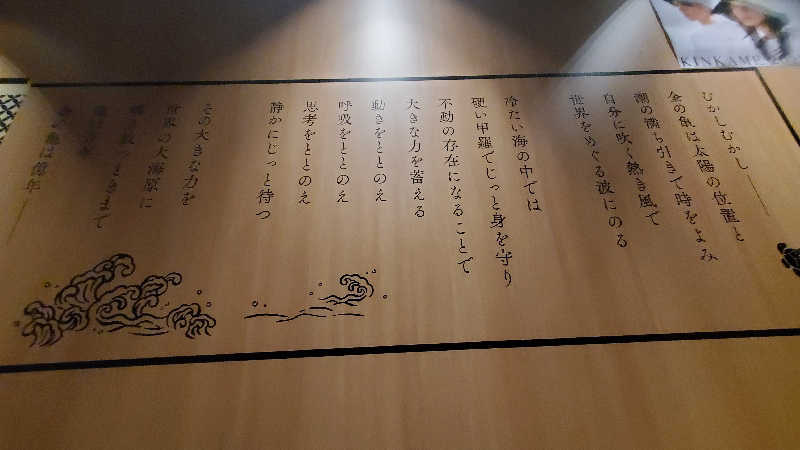 むかしむかし――
金の亀は太陽の位置と
潮の満ち引きで時をよみ
自分に吹く熱き風で
世界をめぐる波にのる
冷たい海の中では
硬い甲羅でじっと身を守り
不動の存在になることで
大きな力を蓄える
動きをととのえ
呼吸をととのえ
思考をととのえ
静かにじっと待つ
その大きな力を
世界の大海原に
放つときまで
亀は億年――
KINKAME